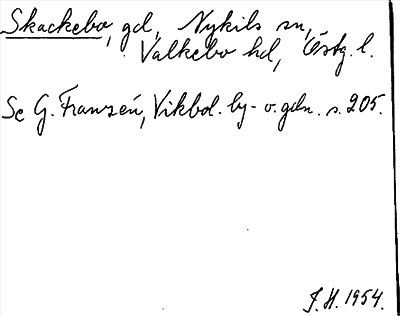 Skackebo, gd, Nykils sn,
Valkebo hd, Östg. l.
Se G. Franzén, Vikbol. by- o. gdn. s. 205.
J. H. 1954.